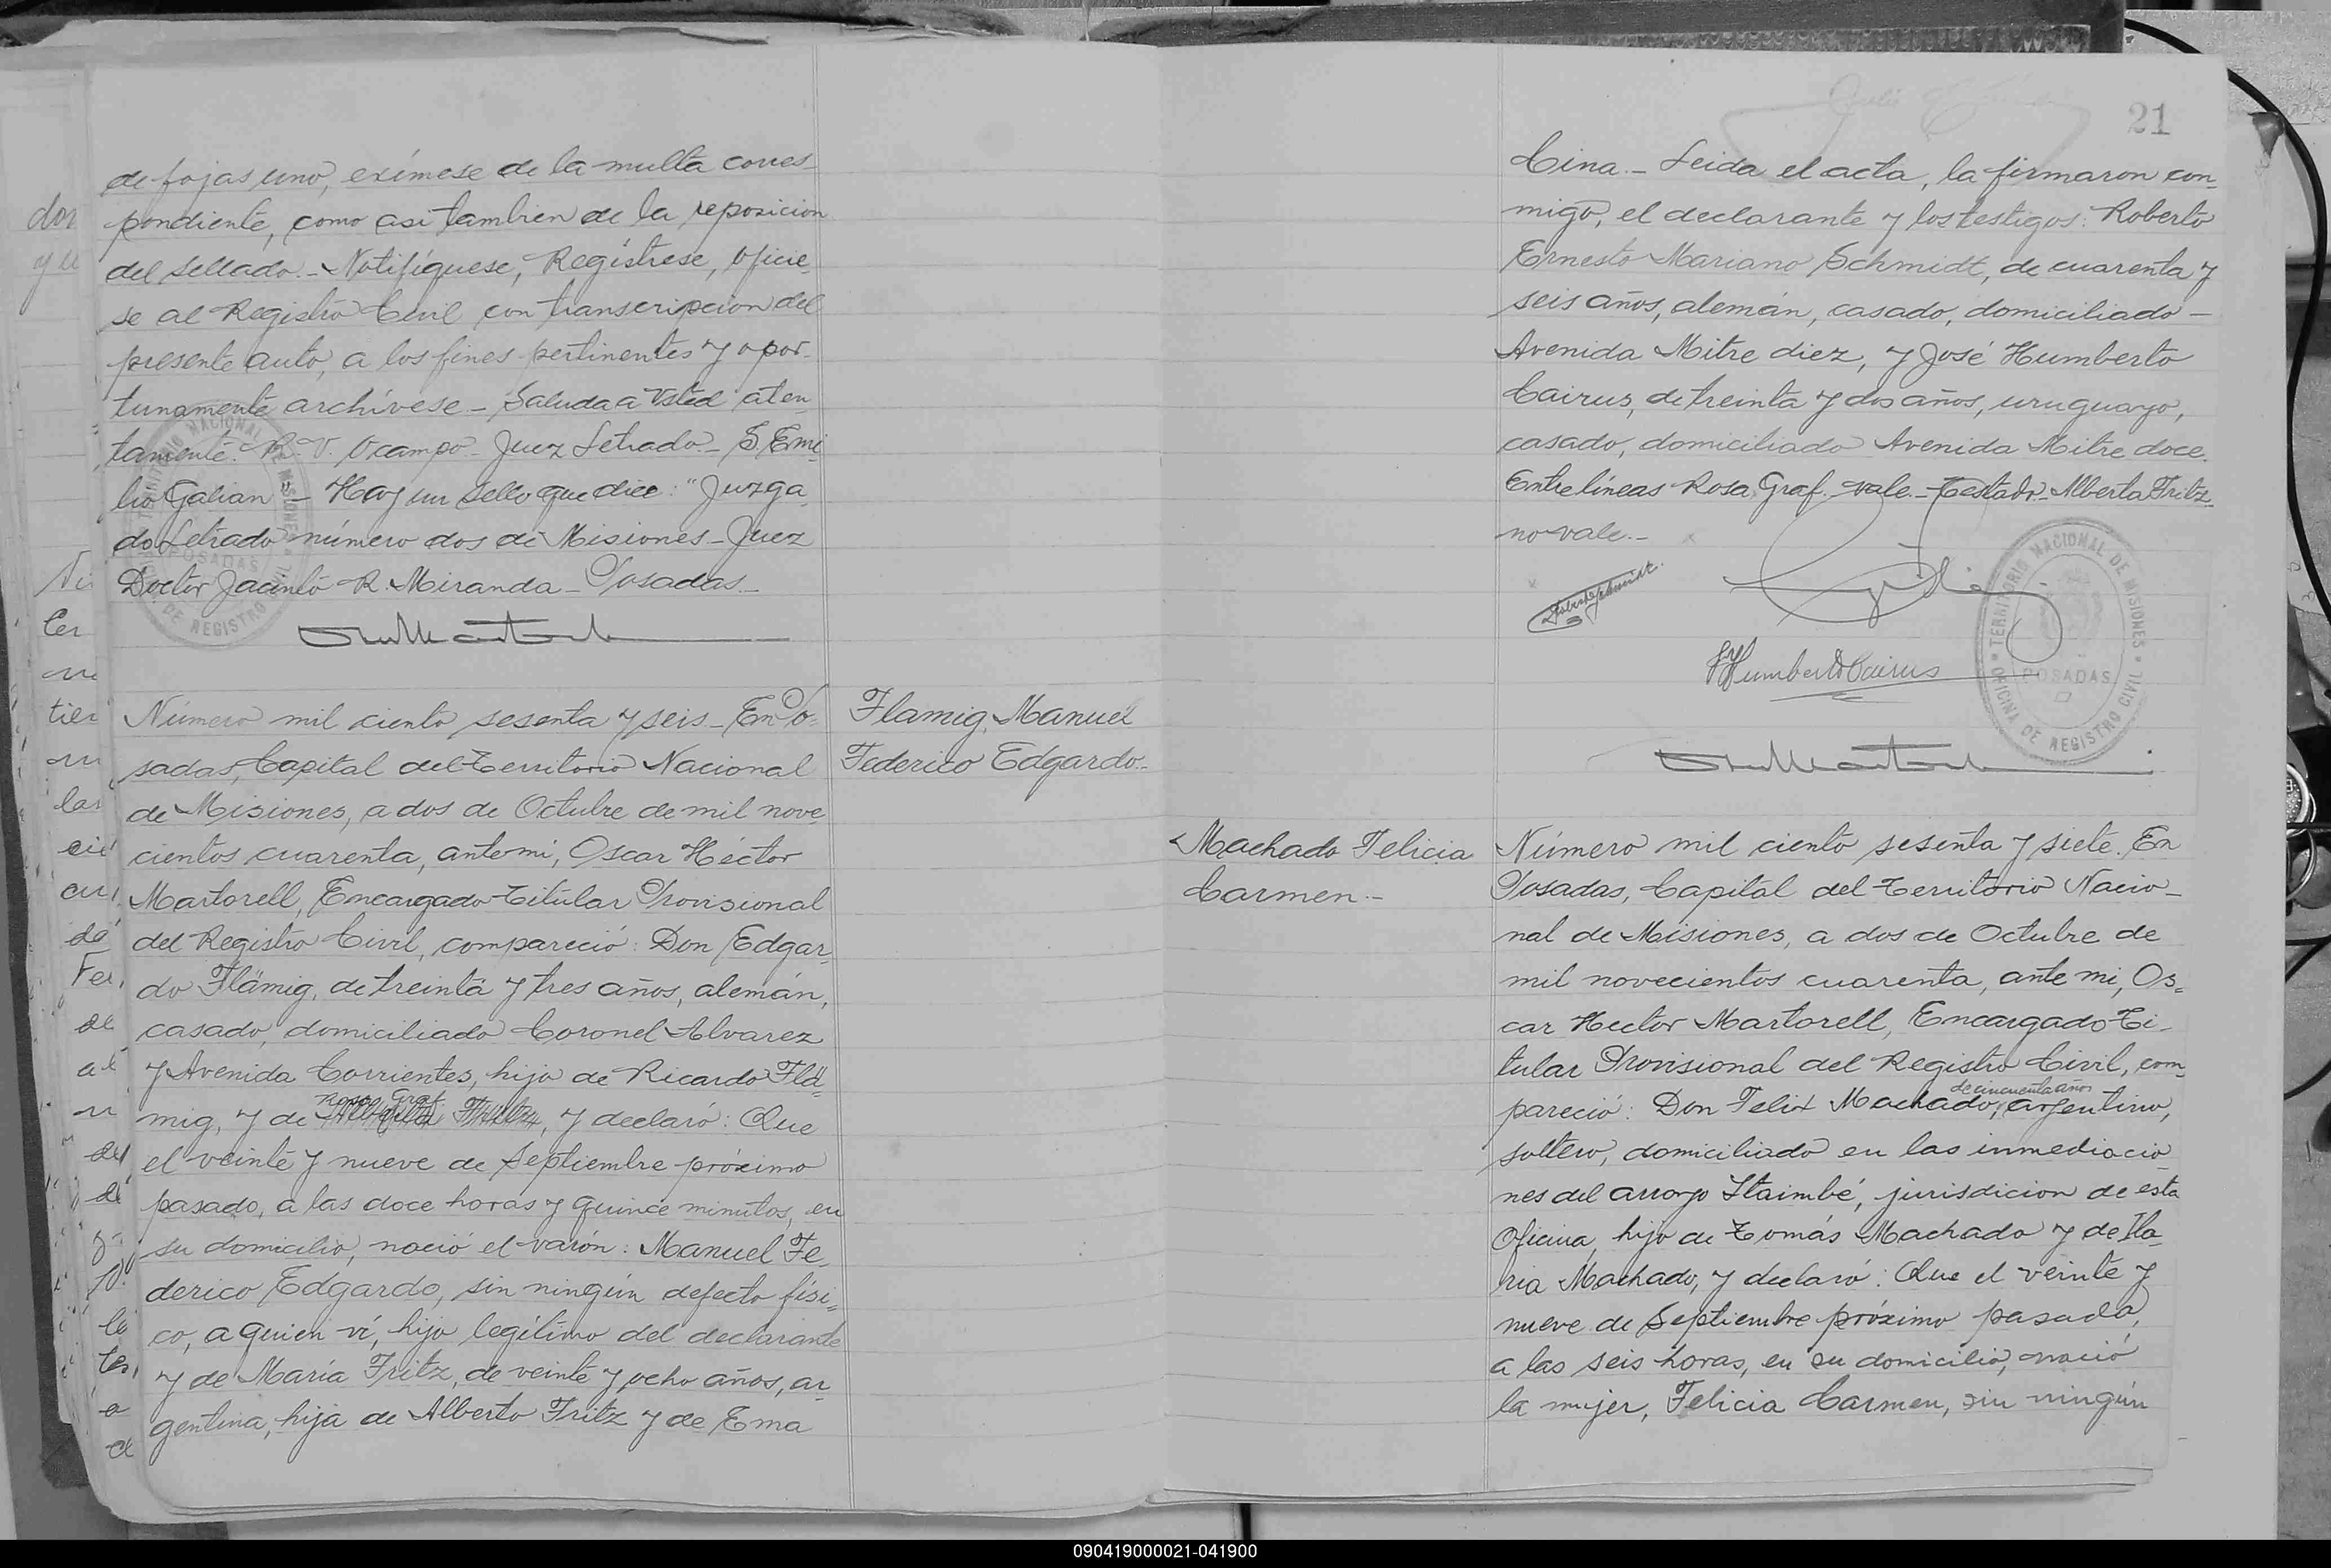 de fojas uno, exímese de la multa corres-
pondiente, como asi tambien de la reposicion
del sellado.- Notifíquese, Regístrese, oficie-
se al Registro Civil con transcripcion del
presente auto, a los fines pertinentes y opor-
tunamente archívese - Saluda a Usted aten-
tamente. R. V. Ocampo - Juez Letrado - S. Emi-
lio Galian - Hay un sello que dice: "Juzga-
do Letrado número dos de Misiones - Juez
Doctor Jacinto R. Miranda - Posadas.-
Número mil ciento sesenta y seis - En Po-
sadas, Capital del Territorio Nacional
de Misiones, a dos de Octubre de mil nove-
cientos cuarenta, ante mi, Oscar Héctor
Martorell, Encargado Titular Provisional
del Registro Civil, compareció: Don Edgar-
do Flämig, de treinta y tres años, alemán,
casado, domiciliado Coronel Alvarez
y Avenida Corrientes, hijo de Ricardo Flä-
Rosa Graf
mig, y de Alberta Fritz, y declaró: Que
el veinte y nueve de Septiembre próximo
pasado, a las doce horas y quince minutos, en
su domicilio, nació el varón: Manuel Fe-
derico Edgardo, sin ningún defecto físi-
co, a quien ví, hijo legítimo del declarante
y de María Fritz, de veinte y ocho años, ar-
gentina, hija de Alberto Fritz y de Ema
Flamig, Manuel
Federico Edgardo.-
21
Cina.- Leida el acta, la firmaron con-
migo, el declarante y los testigos: Roberto
Ernesto Mariano Schmidt, de cuarenta y
seis años, alemán, casado, domiciliado -
Avenida Mitre diez, y José Humberto
Cairus, de treinta y dos años, uruguayo,
casado, domiciliado Avenida Mitre doce.
Entre líneas Rosa Graf - vale.- Testado - Alberta Fritz
no vale.-
JHumberto Cairus
TERRITORIO NACIONAL DE MISIONES
POSADAS
OFICINA DE REGISTRO CIVIL
Machado Felicia
Carmen.-
Número mil ciento sesenta y siete. En
Posadas, Capital del Territorio Nacio-
nal de Misiones, a dos de Octubre de
mil novecientos cuarenta, ante mi, Os-
car Hector Martorell, Encargado Ti-
tular Provisional del Registro Civil, com-
de cincuenta años
pareció: Don Felix Machado, argentino,
soltero, domiciliado en las inmediacio-
nes del arroyo Itaimbé, jurisdicion de esta
Oficina, hijo de Tomás Machado y de Ila-
ria Machado, y declaró: Que el veinte y
nueve de Septiembre próximo pasado,
a las seis horas, en su domicilio, nació
la mujer, Felicia Carmen, sin ningún
090419000021-041900